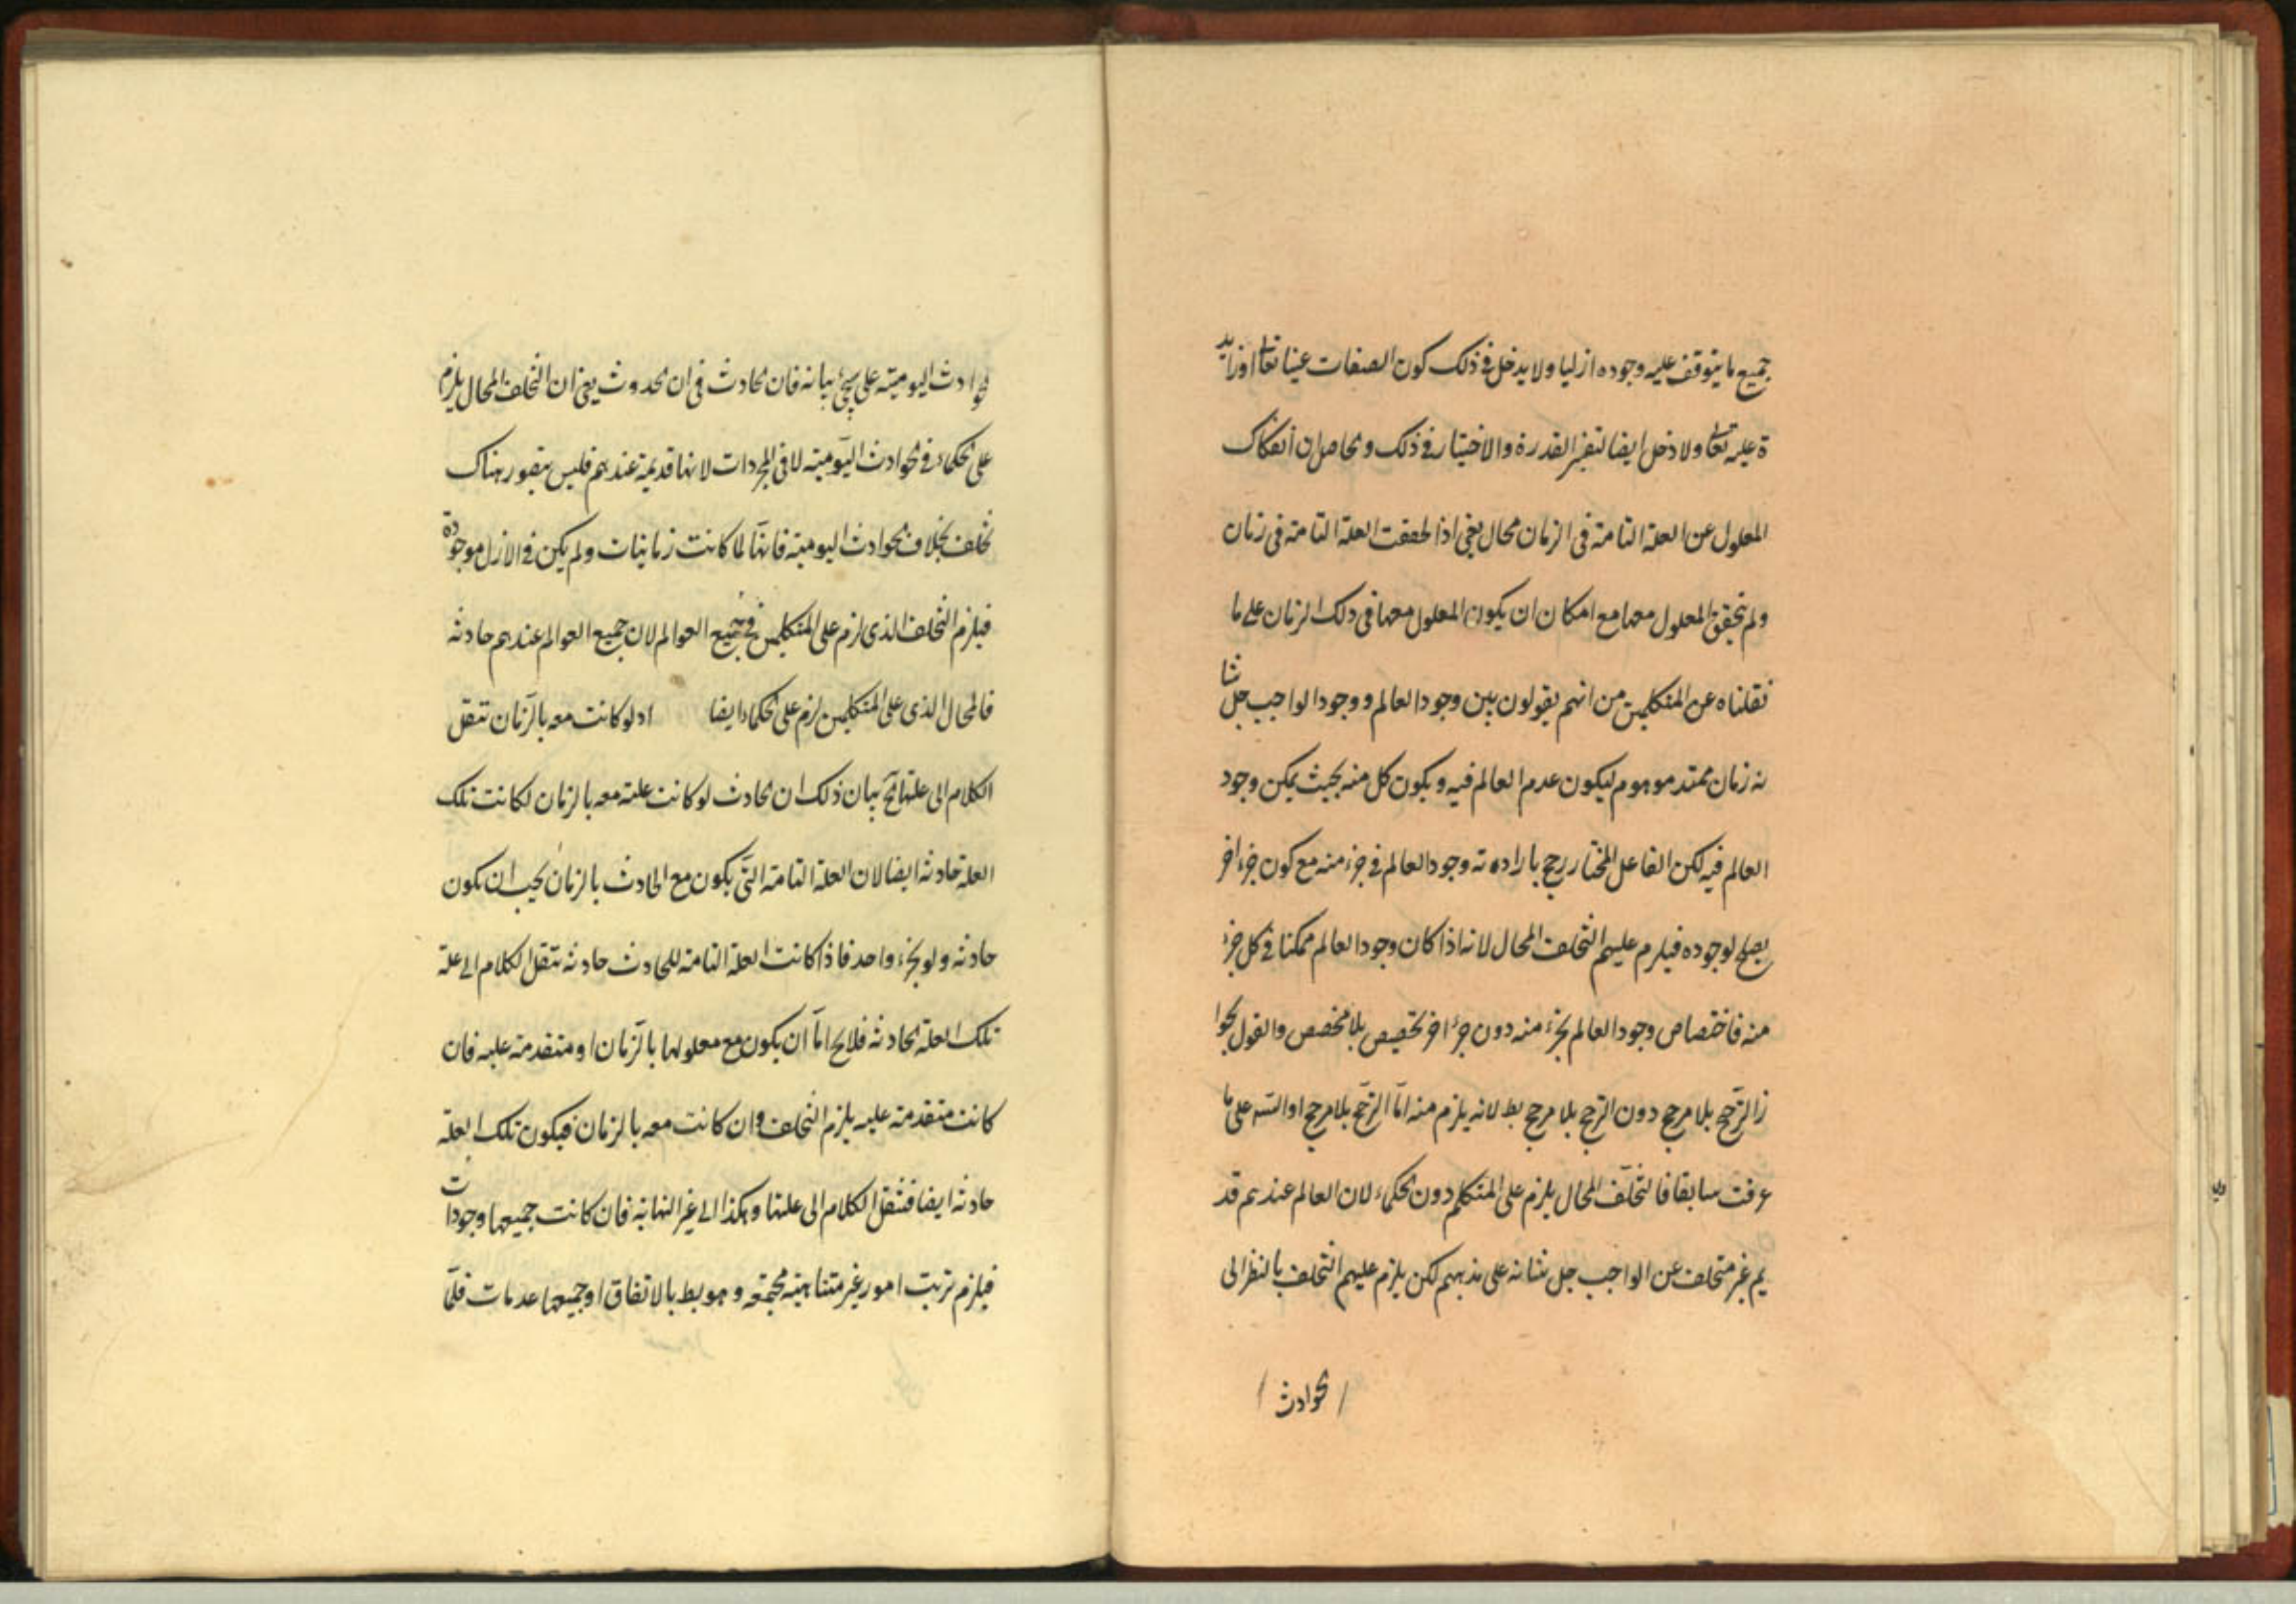 جميع ما يتوقف عليه وجوده ازليا ولا يدخل في ذلك كون الصفات عينا تعا او زايد
ة عليه تعا ولا دخل ايضا لتفسير القدرة والاختيار في ذلك والحاصل ان انفكاك
المعلول عن العلة التامة في الزمان محال يعني اذا تحققت العلة التامة في زمان
ولم يتحقق المعلول معها مع امكان ان يكون المعلول معها في ذلك الزمان على ما
نقلناه عن المتكلمين من انهم يقولون بين وجود العالم ووجود الواجب جل شا
نه زمان ممتد موهوم ليكون عدم العالم فيه ويكون كل منه بحيث يمكن وجود
العالم فيه لكن الفاعل المختار رجح بارادته وجود العالم في جزء منه مع كون جزء اخر
يصلح لوجوده فيلزم عليهم التخلف المحال لانه اذا كان وجود العالم ممكنا في كل جزء
منه فاختصاص وجود العالم بجزء منه دون جزء اخر تخصيص بلا مخصص والقول بجوا
ز الترجيح بلا مرجح دون الترجح بلا مرجح بط لانه يلزم منه اما الترجح بلا مرجح او التسه على ما
عرفت سابقا فالتخلف المحال يلزم على المتكلم دون الحكماء لان العالم عندهم قد
يم غير متخلف عن الواجب جل شانه على مذهبهم لكن يلزم عليهم التخلف بالنظر الى
الحوادث
الحوادث اليومية على سيجئ بيانه فان الحادث في ان الحدوث يعني ان التخلف المحال يلزم
على الحكماء في الحوادث اليومية لا في المجردات لانها قديمة عندهم فليس يتصور هناك
تخلف بخلاف الحوادث اليومية فانها لما كانت زمانيات ولم يكن في الازل موجودة
فيلزم التخلف الذي لزم على المتكلمين في جميع العوالم لان جميع العوالم عندهم حادثه
فالمحال الذي على المتكلمين لزم على الحكماء ايضا اد لو كانت معه بالزمان ننقل
الكلام الى علتها الخ بيان ذلك ان الحادث لو كانت علته معه بالزمان لكانت تلك
العلة حادثه ايضا لان العلة التامة التي يكون مع الحادث بالزمان يجب ان تكون
حادثه ولو بجزء واحد فاذا كانت العلة التامة للحادث حادثه ننقل الكلام الى علة
تلك العلة الحادثه فلا يخ اما ان يكون مع معلولها بالزمان او متقدمة عليه فان
كانت متقدمة عليه يلزم التخلف وان كانت معه بالزمان فيكون تلك العلة
حادثه ايضا فننقل الكلام الى علتها وهكذا الى غير النهاية فان كانت جميعها وجودات
فيلزم ترتب امور غير متناهية مجتمعة وهو بط بالاتفاق او جميعها عدمات فلما